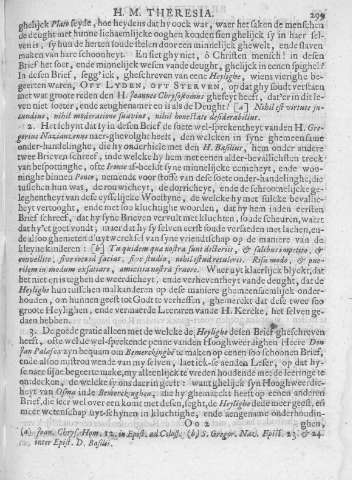 H. M. THERESIA. 299
ghelijck Plato seyde, hoe heydens dat hy oock war, waer het saken de menschen
de deught met hunne lichaemelijcke ooghen konden sien ghelijck sy in haer sel-
ven is, sy hun de herten soude stelen door een minnelijck ghewelt, ende slaven
maken van hare schoonheydt. En siet ghy niet, ô Christen mensch! in desen
Brief het soet, ende minnelijck wesen vande deught, ghelijck in eenen spighel?
In desen Brief, segg'ick, gheschreven van eene Heylighe, wiens vierighe be-
geerten waren, OFT LYDEN, OFT STERVEN, op dat ghy soudt verstaen
met wat groote reden den H. Joannes Chrysostomus gheseyt heeft, dat'er in dit le-
ven niet soeter, ende aenghenamer en is als de Deught? [a] Nihil est virtute ju-
cundius, nihil moderatione suavius, nihil honestate desiderabilius.
2. Het schynt dat sy in desen Brief de soete wel-sprekentheydt vanden H. Gre-
gorius Nazianzenus naer-ghevolght heeft, den welcken in syne ghemeensaeme
onder-handelinghe, die hy onderhiel met den H. Basilius, hem onder andere
twee Brieven schreef, inde welcke hy hem met eenen alder-bevallichsten treck
van bespottinghe, ofte Ironie af-beeldt syne minnelijcke eenicheyt, ende woo-
ninghe binnen Ponto, nemende voor stoffe van dese soete onder-handelinghe, die
tusschen hun was, de rouwicheyt, de dorricheyt, ende de schroomelijcke ge-
leghentheyt van dese cyffelijcke Woestyne, de welcke hy met sulcke bevallic-
heyt vertooght, ende met soo kluchtighe woorden, dat hy hem inden eersten
Brief schreef, dat hy syne Brieven vervult met kluchten, soude scheuren, waer't
dat hy geen vreese en hadt, dat hy sich selven eerst soude versaeden met lachen, en-
de alsoo ghemeten d'uytwerckfel van syn vriendschap op de maniere van de
kleyne kinderen: (b) Tu quidem quæ nostra sunt dicteriis, & salibus impetito, &
convellito, sive ioceud faciat, sive studio, nihil istud retulerit. Risu modo, & pue-
rilem in modum exsatiare, amicitiaque nostra fruare. Waer uyt klaerlijck blyckt, dat
het niet en is teghen de weerdicheyt, ende verheventheyt vande deught, dat de
Heylighe hun tusschen malkanderen op dese ghemeensaeme maniere onder-
houden, om hunnen geest tot Godt te verheffen, ghemerckt dat dese twee soo
groote Heylighen, ende vermaerde Leeraren vande H. Kercke, het selven ge-
daen hebben.
3. De goede gratie alleen met de welcke de Heylighe desen Brief gheschreven
heeft, ofte welde wel-sprekende penne vanden Hooghweerdighen Heere Don
Juan Palafox zyn bequaem om Bemerckinghe te maken op eenen soo schoonen Brief,
ende alsoo mistrouwende van my selven, laet ick-se aenden Leser, op dat hy-
se naer sijne begeerte make, my alleelijck te vreden houdende met de leeringe te
ontdecken, de welcke sy ons daer in gheeft: want ghelijck syn Hooghweerdic-
heyt van Osma inde Bemerckinghen, die hy ghemaeckt heeft op eenen anderen
Brief, die seer wel over een komt met desen, seght, de Heylighe dede meer geest, en
meer wetenschap uyt-schynen in kluchtighe, ende aengename onderhoudin-
Oo 2 ghen,
(a). Joan. Chrys. Hom. 12. in Epist. ad Coloss. (b) S. Gregor. Naz. Epist. 23. & 24.
inter Epist. D. Basilii.